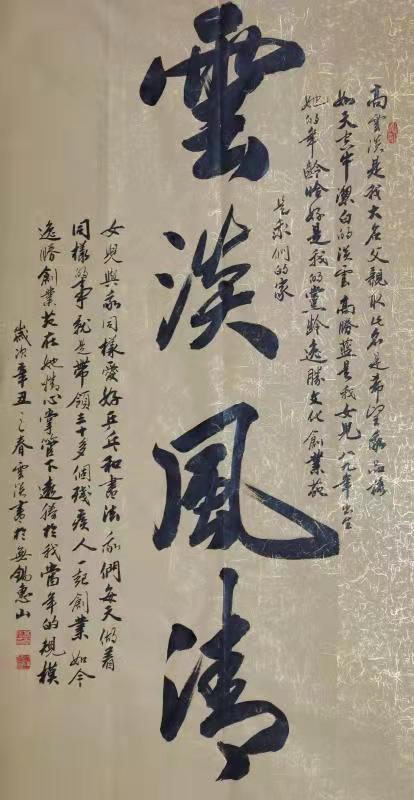 高雲淡是我大名父親取此名是希望我品格
如天空中潔白的淡雲高勝藍是我女兒八九年出生
她的年齡恰好是我的黨齡逸勝文化創業苑
是我們的家
雲淡風清
女兒與我同樣愛好乒乓和書法我們每天做着
同樣的事就是帶領三十多個殘疾人一起創業如今
逸勝創業苑在她精心掌管下遠勝於我當年的規模
歲次辛丑之春雲淡書於無錫惠山